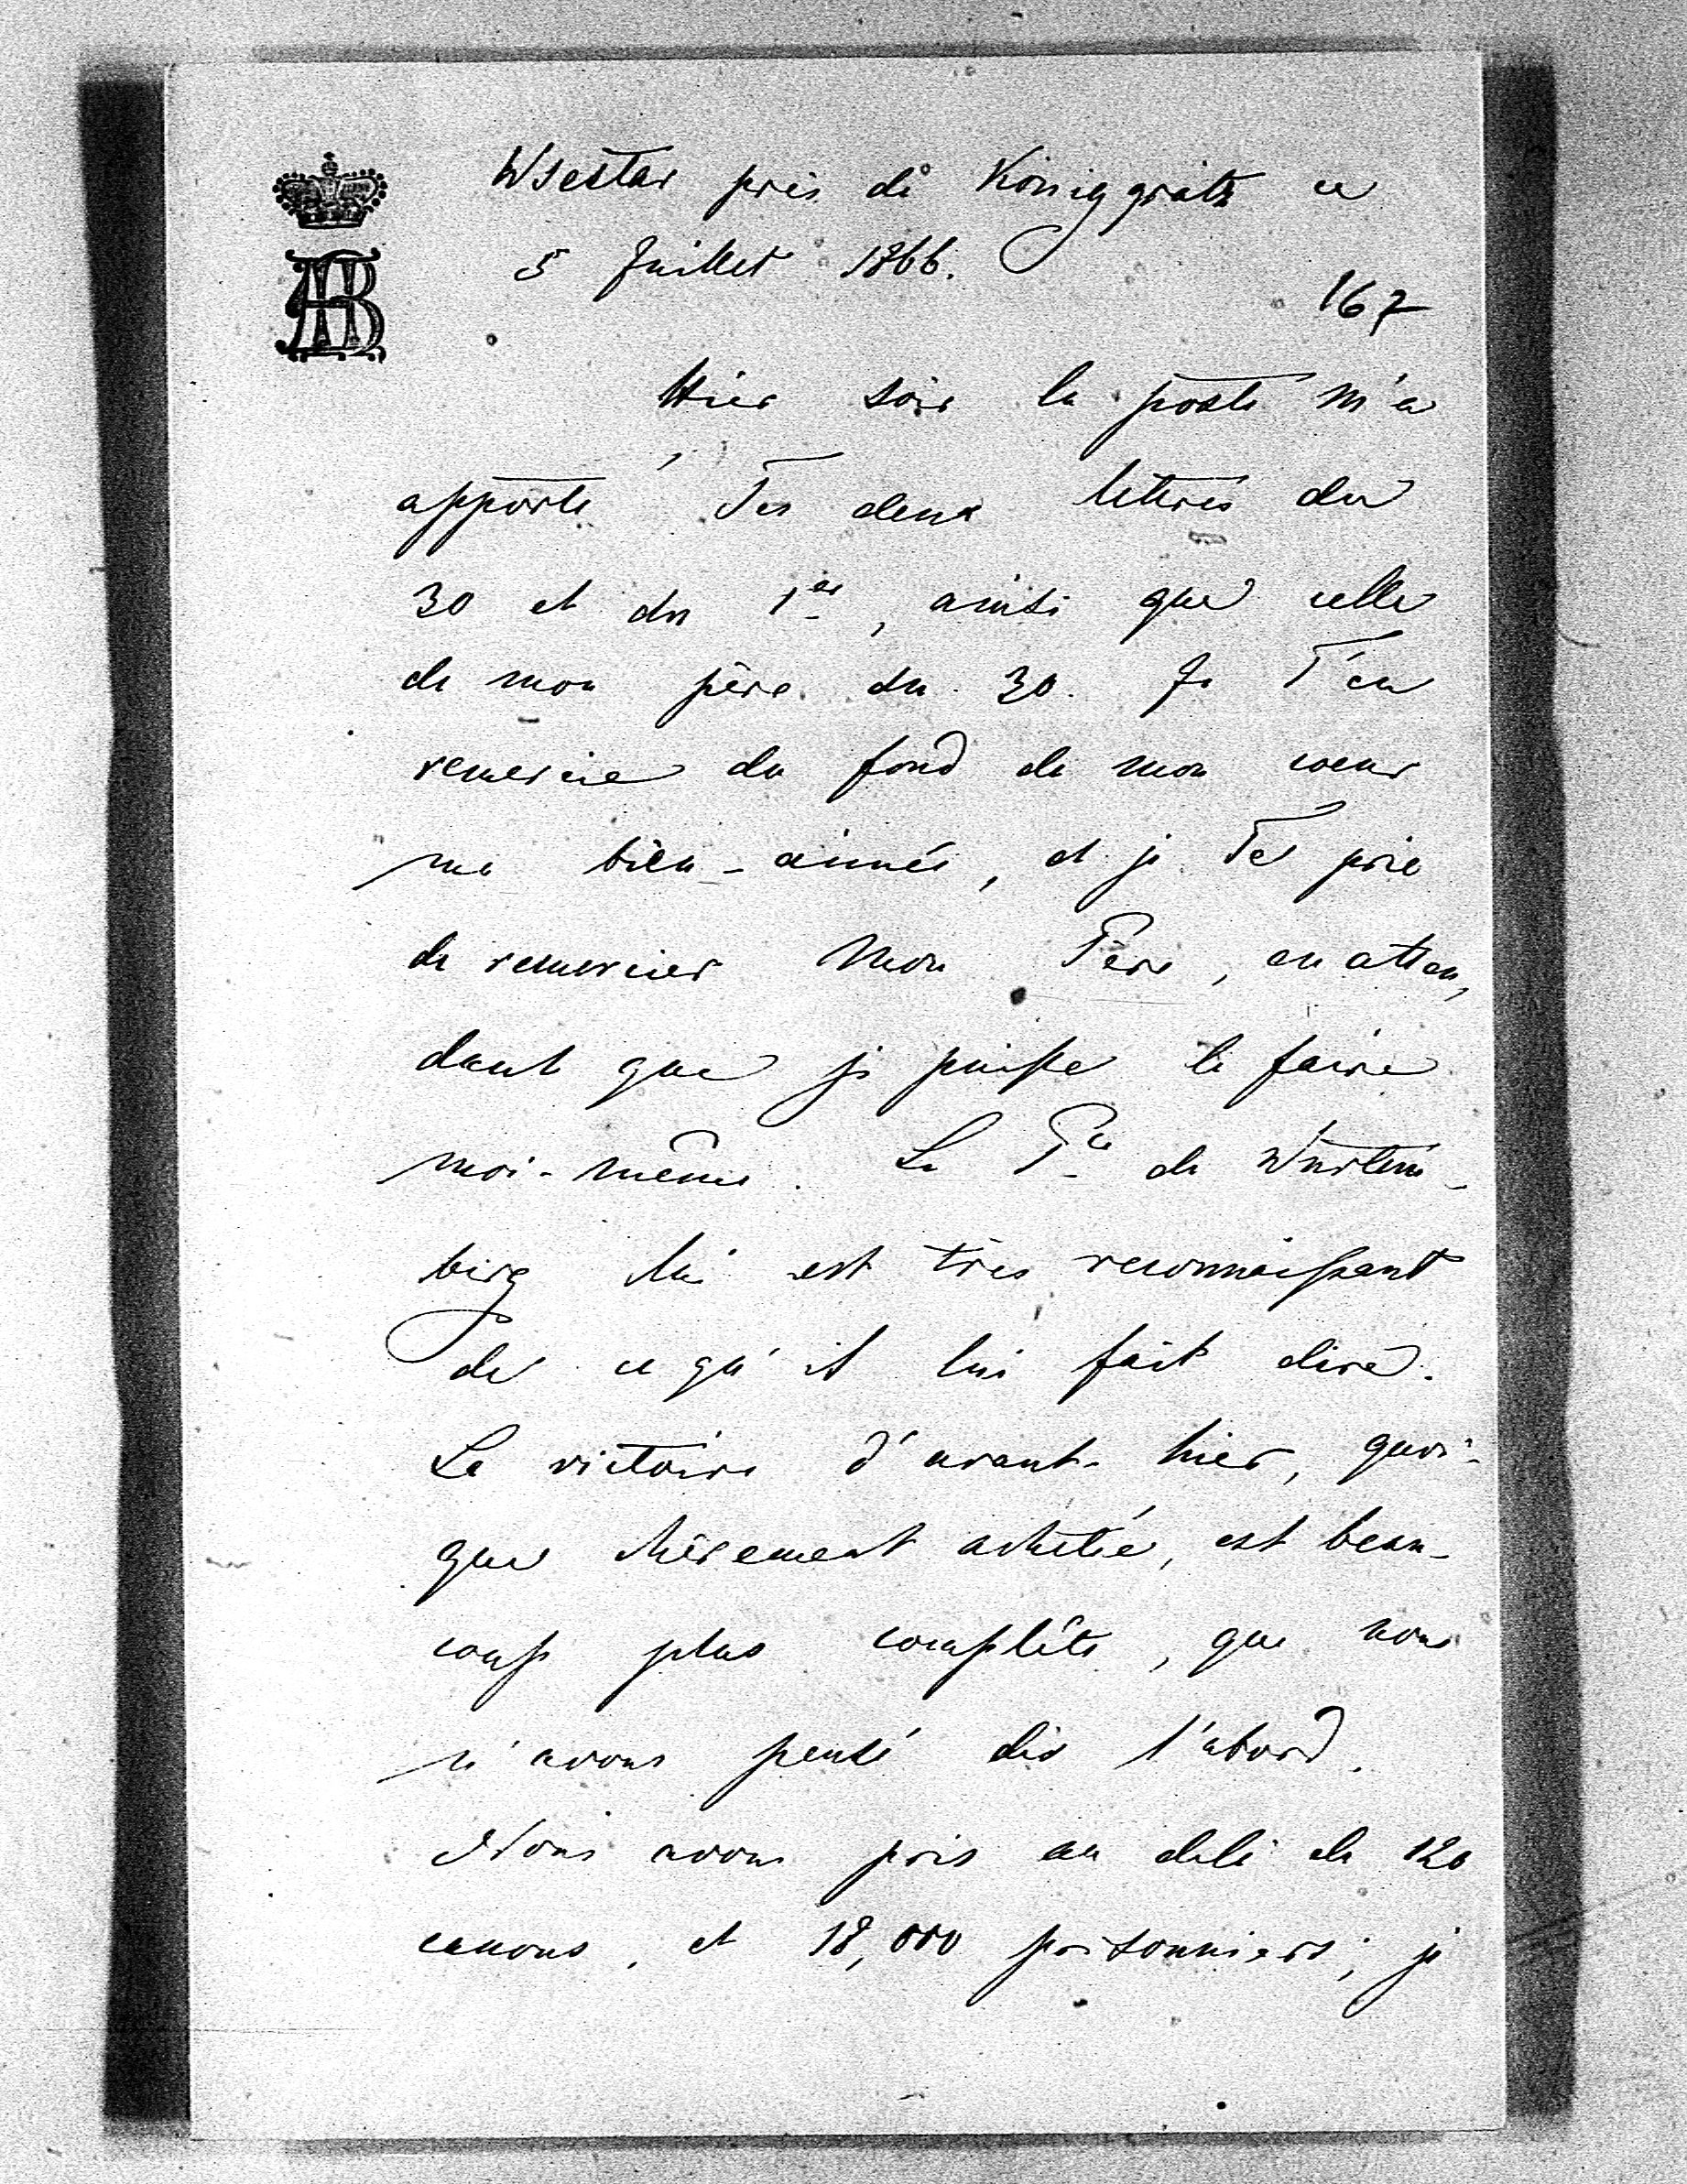 Wsestar près de Königgrätz ce
5 Juillet 1866.
167
AB
Hier soir la poste m'a
apporté Tes deux lettres du
30 et du 1er, ainsi que celle
de mon père du 30. Je T'en
remercie du fond de mon coeur
ma bien-aimée, et je Te prie
de remercier Mon Père, en atten,
dant que je puisse le faire
moi-même. Le Pce de Würtem-
berg lui est très reconnaissant
de ce qu'il lui fait dire.
La victoire d'avant-hier, quoi-
que chèrement achetée, est beau-
coup plus complète, que nous
n'avons pensé dès l'abord.
Nous avons pris au delà de 120
canons, et 18,000 prisonniers; je